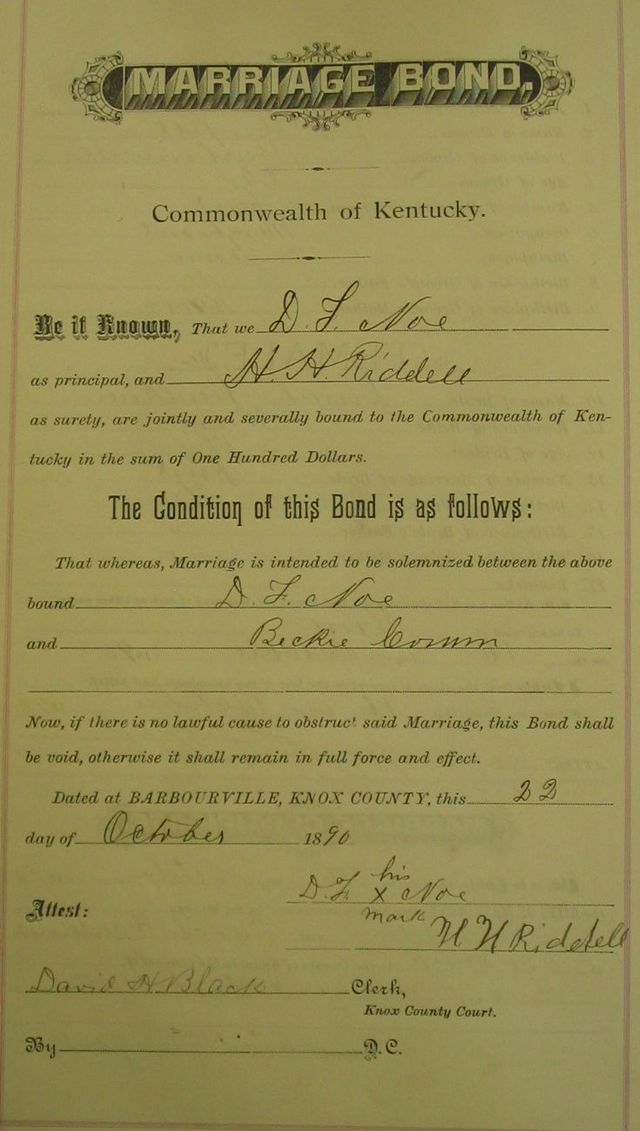 MARRIAGE BOND.
Commonwealth of Kentucky.
Be it Known, That we D. F. Noe
as principal, and H. H. Riddell
as surety, are jointly and severally bound to the Commonwealth of Ken-
tucky in the sum of One Hundred Dollars.
The Condition of this Bond is as follows:
That whereas, Marriage is intended to be solemnized between the above
bound D. F. Noe
and Beckie
Now, if there is no lawful cause to obstruct said Marriage, this Bond shall
be void, otherwise it shall remain in full force and effect.
Dated at BARBOURVILLE, KNOX COUNTY, this 22
day of October 1890
his
D. F. x Noe
mark
Attest:
H H Riddell
David H Black Clerk,
Knox County Court.
By D. C.